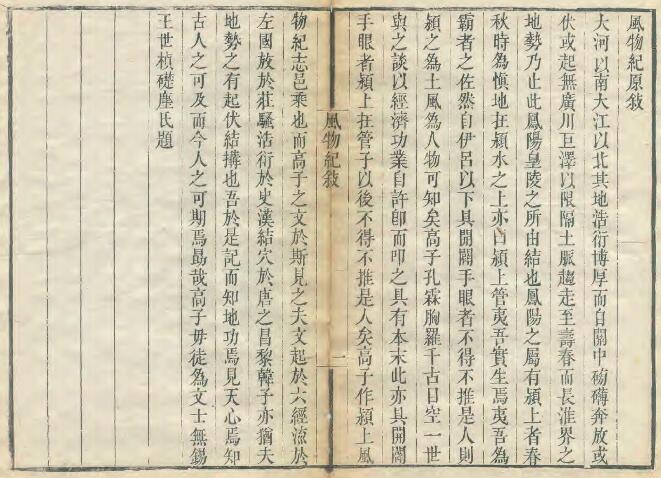 風物紀原敍
大河以南大江以北其地浩衍博厚而自關中磅礡奔放或
伏或起無廣川巨澤以限隔土脈趨走至壽春而長淮界之
地勢乃止此鳳陽皇陵之所由結也鳳陽之屬有潁上者春
秋時為慎地在潁水之上亦曰潁上管夷吾實生焉夷吾為
霸者之佐然自伊呂以下具開闢手眼者不得不推是人則
潁之為土風為人物可知矣高子孔霖胸羅千古目空一世
與之談以經濟功業自許卽而叩之具有本末此亦具開闢
手眼者潁上在管子以後不得不推是人矣高子作潁上風
風物紀敍
一
物紀志邑乘也而高子之文於斯見之夫文起於六經流於
左國放於莊騷浩衍於史漢結穴於唐之昌黎韓子亦猶夫
地勢之有起伏結搆也吾於是記而知地功焉見天心焉知
古人之可及而今人之可期焉勗哉高子毋徒為文士無錫
王世楨礎塵氏題